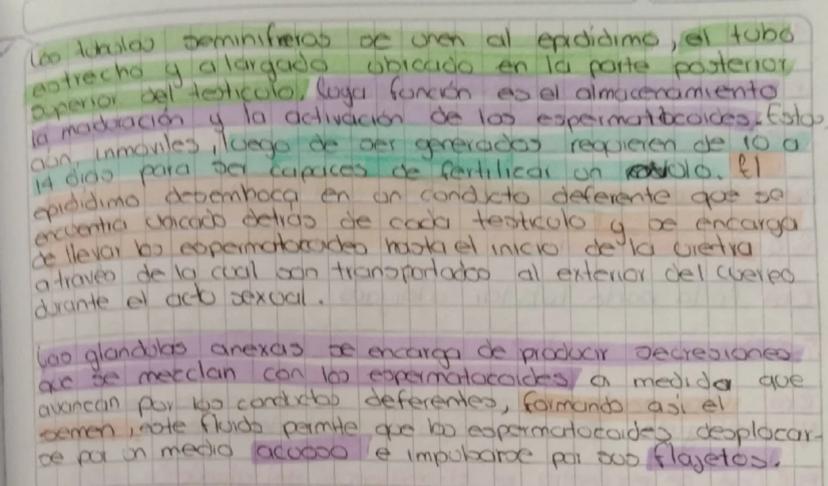 Los tubulos seminiferos se unen al epididimo, el tubo
estrecho y alargado ubicado en la parte posterior
superior del testiculo. Cuya función es el almacenamiento
la maduración y la activación de los espermatocoides. Estos
aún, inmoviles, luego de ser generados requieren de 10 a
14 dias para ser capaces de fertilicar un ovulo. El
epididimo desemboca en un conducto deferente que se
encuentra ubicado detras de cada testiculo y se encarga
de llevar los espermatocoides hasta el inicio de la uretra
a través de la cual son transportados al exterior del cuerpo
durante el acto sexual.
Las glandulas anexas se encarga de producir secresiones
que se mezclan con los espermatocoides a medida que
avancan por los conductos deferentes, formando asi el
semen, este fluido permite que los espermatocoides desplocar-
se por un medio acuoso e impulsarse por sus flajetos.